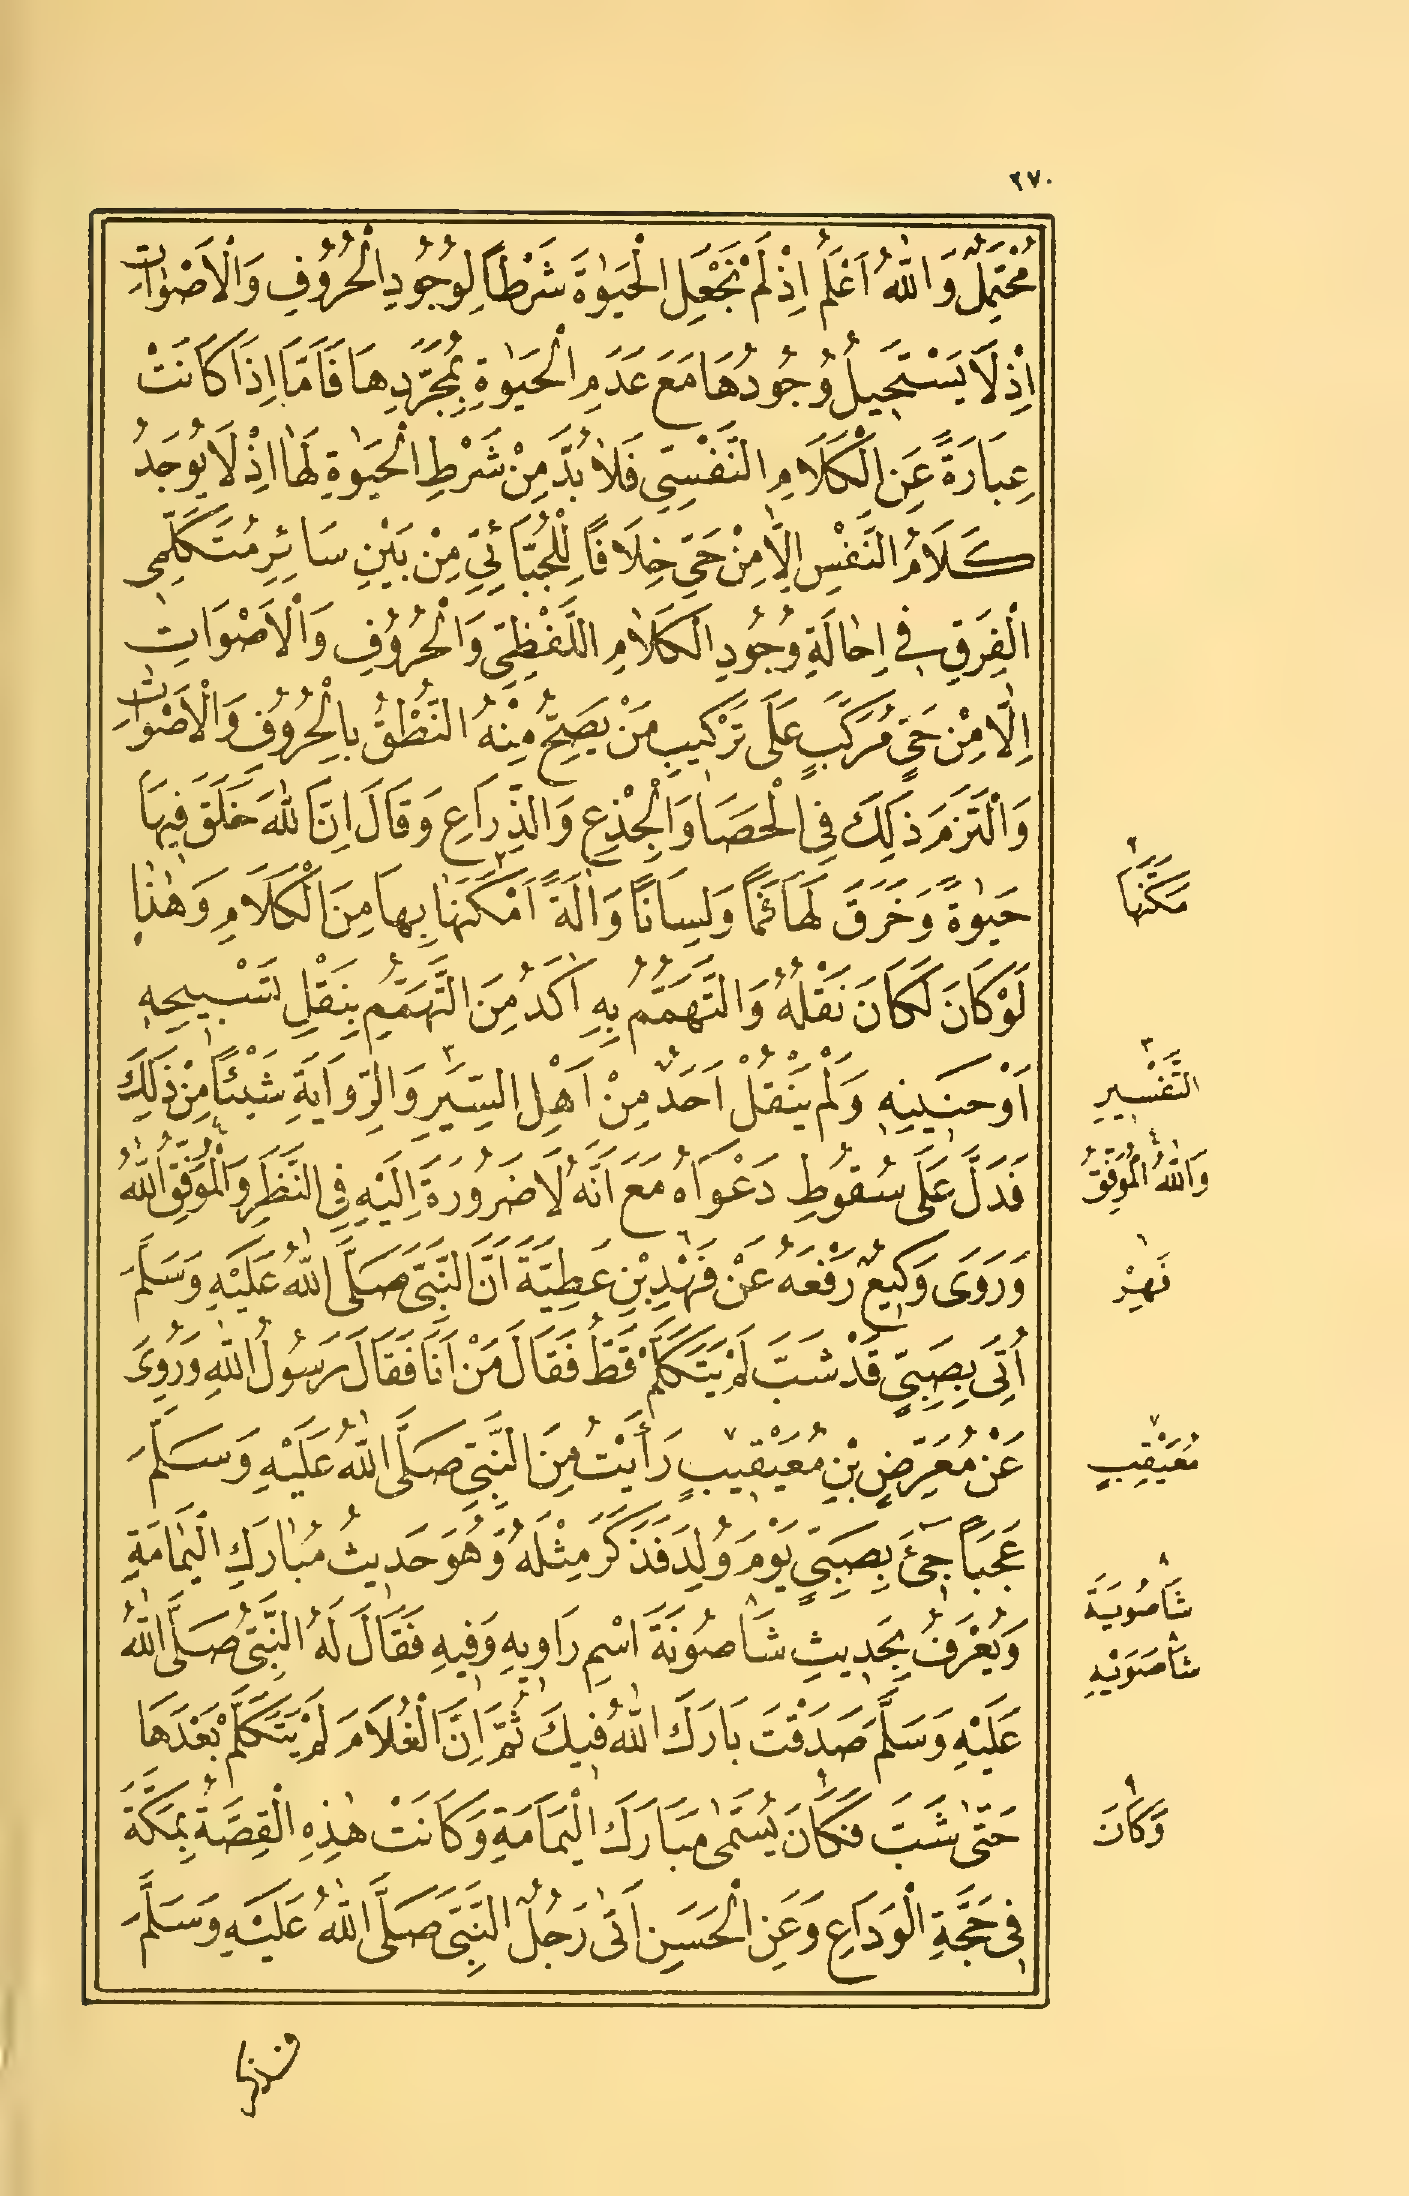 ٢٧٠
مُحْتَمِلٌ وَاللهُ اَعْلَمُ اِذْ لَمْ نَجْعَلِ الْحَيٰوةَ شَرْطًا لِوُجُودِ الْحُرُوُفِ وَالْاَصْوَاتِ
اِذْ لَا يَسْتَحِيلُ وُجُودُهَا مَعَ عَدَمِ الْحَيٰوةِ بِمُجَرَّدِهَا فَاَمَّا اِذَا كَانَتْ
عِبَارَةً عَنِ الْكَلَامِ النَّفْسِيّ فَلَا بُدَّ مِنْ شَرْطِ الْحَيٰوةِ لَهَا اِذْ لَا يُوجَدُ
كَلَامُ النَّفْسِ اِلَّا مِنْ حَيّ خِلَافًا لِلْجُبَّائِيّ مِنْ بَيْنِ سَائِرِ مُتَكَلِّمِى
الْفِرَقِ فى اِحَالَةِ وُجُودِ الْكَلَامِ اللَّفْظِىّ وَالْحُرُوُفِ وَالْاَصْوَاتِ
اِلَّا مِنْ حَىّ مُرَكَّبٍ عَلَى تَرْكِيبِ مَنْ يَصِحُّ مِنْهُ النُّطْقُ بِالْحُرُوُفِ وَالْاَصْوَاتِ
وَالْتَزَمَ ذلِكَ فِى الْحَصَا وَالْجِذْعِ وَالذِّرَاعِ وَقَالَ اِنَّ اللهَ خَلَقَ فِيهَا
حَيٰوةً وَخَرَقَ لَهَا فَمًا وَلِسَانًا وَاٰلَةً اَمْكَنَهَا ٢ بِهَا مِنَ الْكَلَامِ وَهٰذَا
لَوْ كَانَ لَكَانَ نَقْلُهُ وَالتَّهَمُّمُ بِهِ اٰكَدُ مِنَ التَّهَمُّمِ بِنَقْلِ تَسْبِيحِهِ
اَوْ حَنِينِهِ وَلَمْ يَنْقُلْ اَحَدٌ مِنْ اَهْلِ السِّيَرِ ٣ وَالرِّوَايَةِ شَيْئًا مِنْ ذلِكَ
فَدَلَّ عَلَى سُقُوطِ دَعْوَاهُ مَعَ اَنَّهُ لَا ضَرُورَةَ اِلَيْهِ فِى النَّظَرِ وَالْمُوَفِّقُ ٤ اللهُ
وَرَوَى وَكِيعٌ رَفْعَهُ عَنْ فَهْدِ ٦ بْنِ عَطِيَّةَ اَنَّ النَّبِىَّ صَلَّى اللهُ عَلَيْهِ وَسَلَّمَ
اُتِىَ بِصَبِىّ قَدْ شَبَّ لَمْ يَتَكَلَّمْ قَطُّ فَقَالَ مَنْ اَنَا فَقَالَ رَسُولُ اللهِ وَرُوِىَ
عَنْ مُعَرِّضِ بْنِ مُعَيْقِيبٍ ٧ رَاَيْتُ مِنَ النَّبِىِّ صَلَّى اللهُ عَلَيْهِ وَسَلَّمَ
عَجَبًا جِئَ بِصَبِىٍّ يَوْمَ وُلِدَ فَذَكَرَ مِثْلَهُ وَهُوَ حَدِيثُ مُبَارَكِ الْيَمَامَةِ
وَيُعْرَفُ بِحَدِيثِ شَاصُونَةَ ٨ اسْمِ رَاوِيهِ وَفِيهِ فَقَالَ لَهُ النَّبِىُّ صَلَّى اللهُ
عَلَيْهِ وَسَلَّمَ صَدَقْتَ بَارَكَ اللهُ فِيكَ ثُمَّ اِنَّ الْغُلَامَ لَمْ يَتَكَلَّمْ بَعْدَهَا
حَتّٰى شَبَّ فَكَانَ ٩ يُسَمّٰى مُبَارَكَ الْيَمَامَةِ وَكَانَتْ هٰذِهِ الْقِصَّةُ بِمَكَّةَ
فِى حَجَّةِ الْوَدَاعِ وَعَنِ الْحَسَنِ اَتٰى رَجُلٌ النَّبِىَّ صَلَّى اللهُ عَلَيْهِ وَسَلَّمَ
مَكَّنَهَا
٣ التَّفْسِيرِ
٤ وَاللهُ الْمُوَفِّقُ
٦ فَهِدْ
٧ مُعَيْقِبٍ
٨ شَاصُويَةَ
٨ شَاصَوَيْهِ
٩ وَكَانَ
فذكر